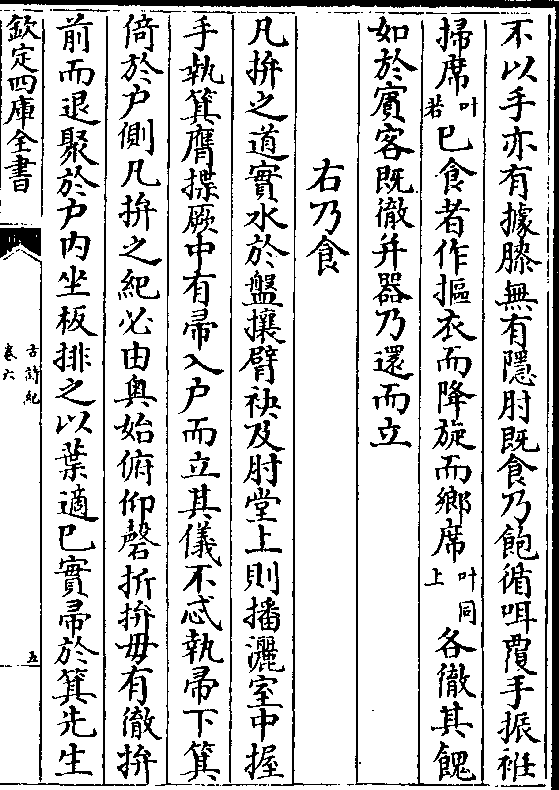 不以手亦有據膝無有隱肘既食乃飽循咡覆手振袵
掃席叶若已食者作摳衣而降旋而鄉席叶同上各徹其餽
如於賓客既徹并器乃還而立
右乃食
凡拚之道實水於盤攘臂袂及肘堂上則播灑室中握
手執箕膺揲厥中有帚入户而立其儀不忒執帚下箕
倚於户側凡拚之紀必由奥始俯仰磬折拚毋有徹拚
前而退聚於户内坐板排之以葉適已實帚於箕先生
欽定四庫全書
古詩紀
卷六
五